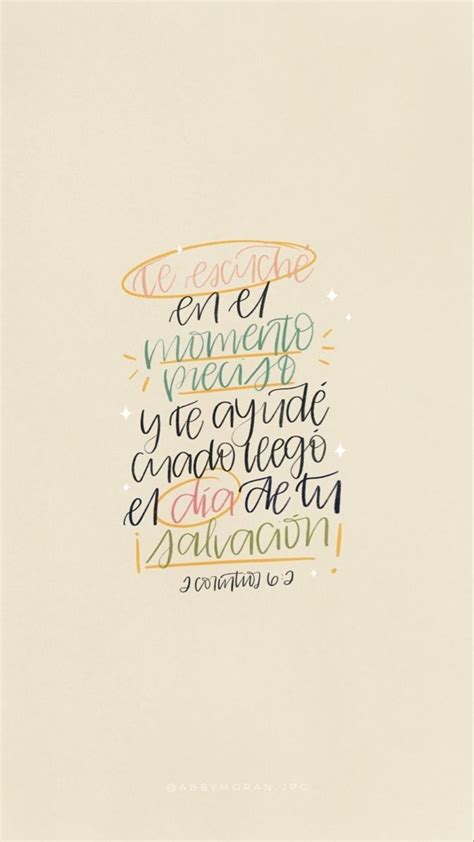 te escuché
en el
momento
preciso
y te ayudé
cuado llegó
el día de tu
¡salvación!
2 corintios 6:2
@ABBYMORAN.JPG